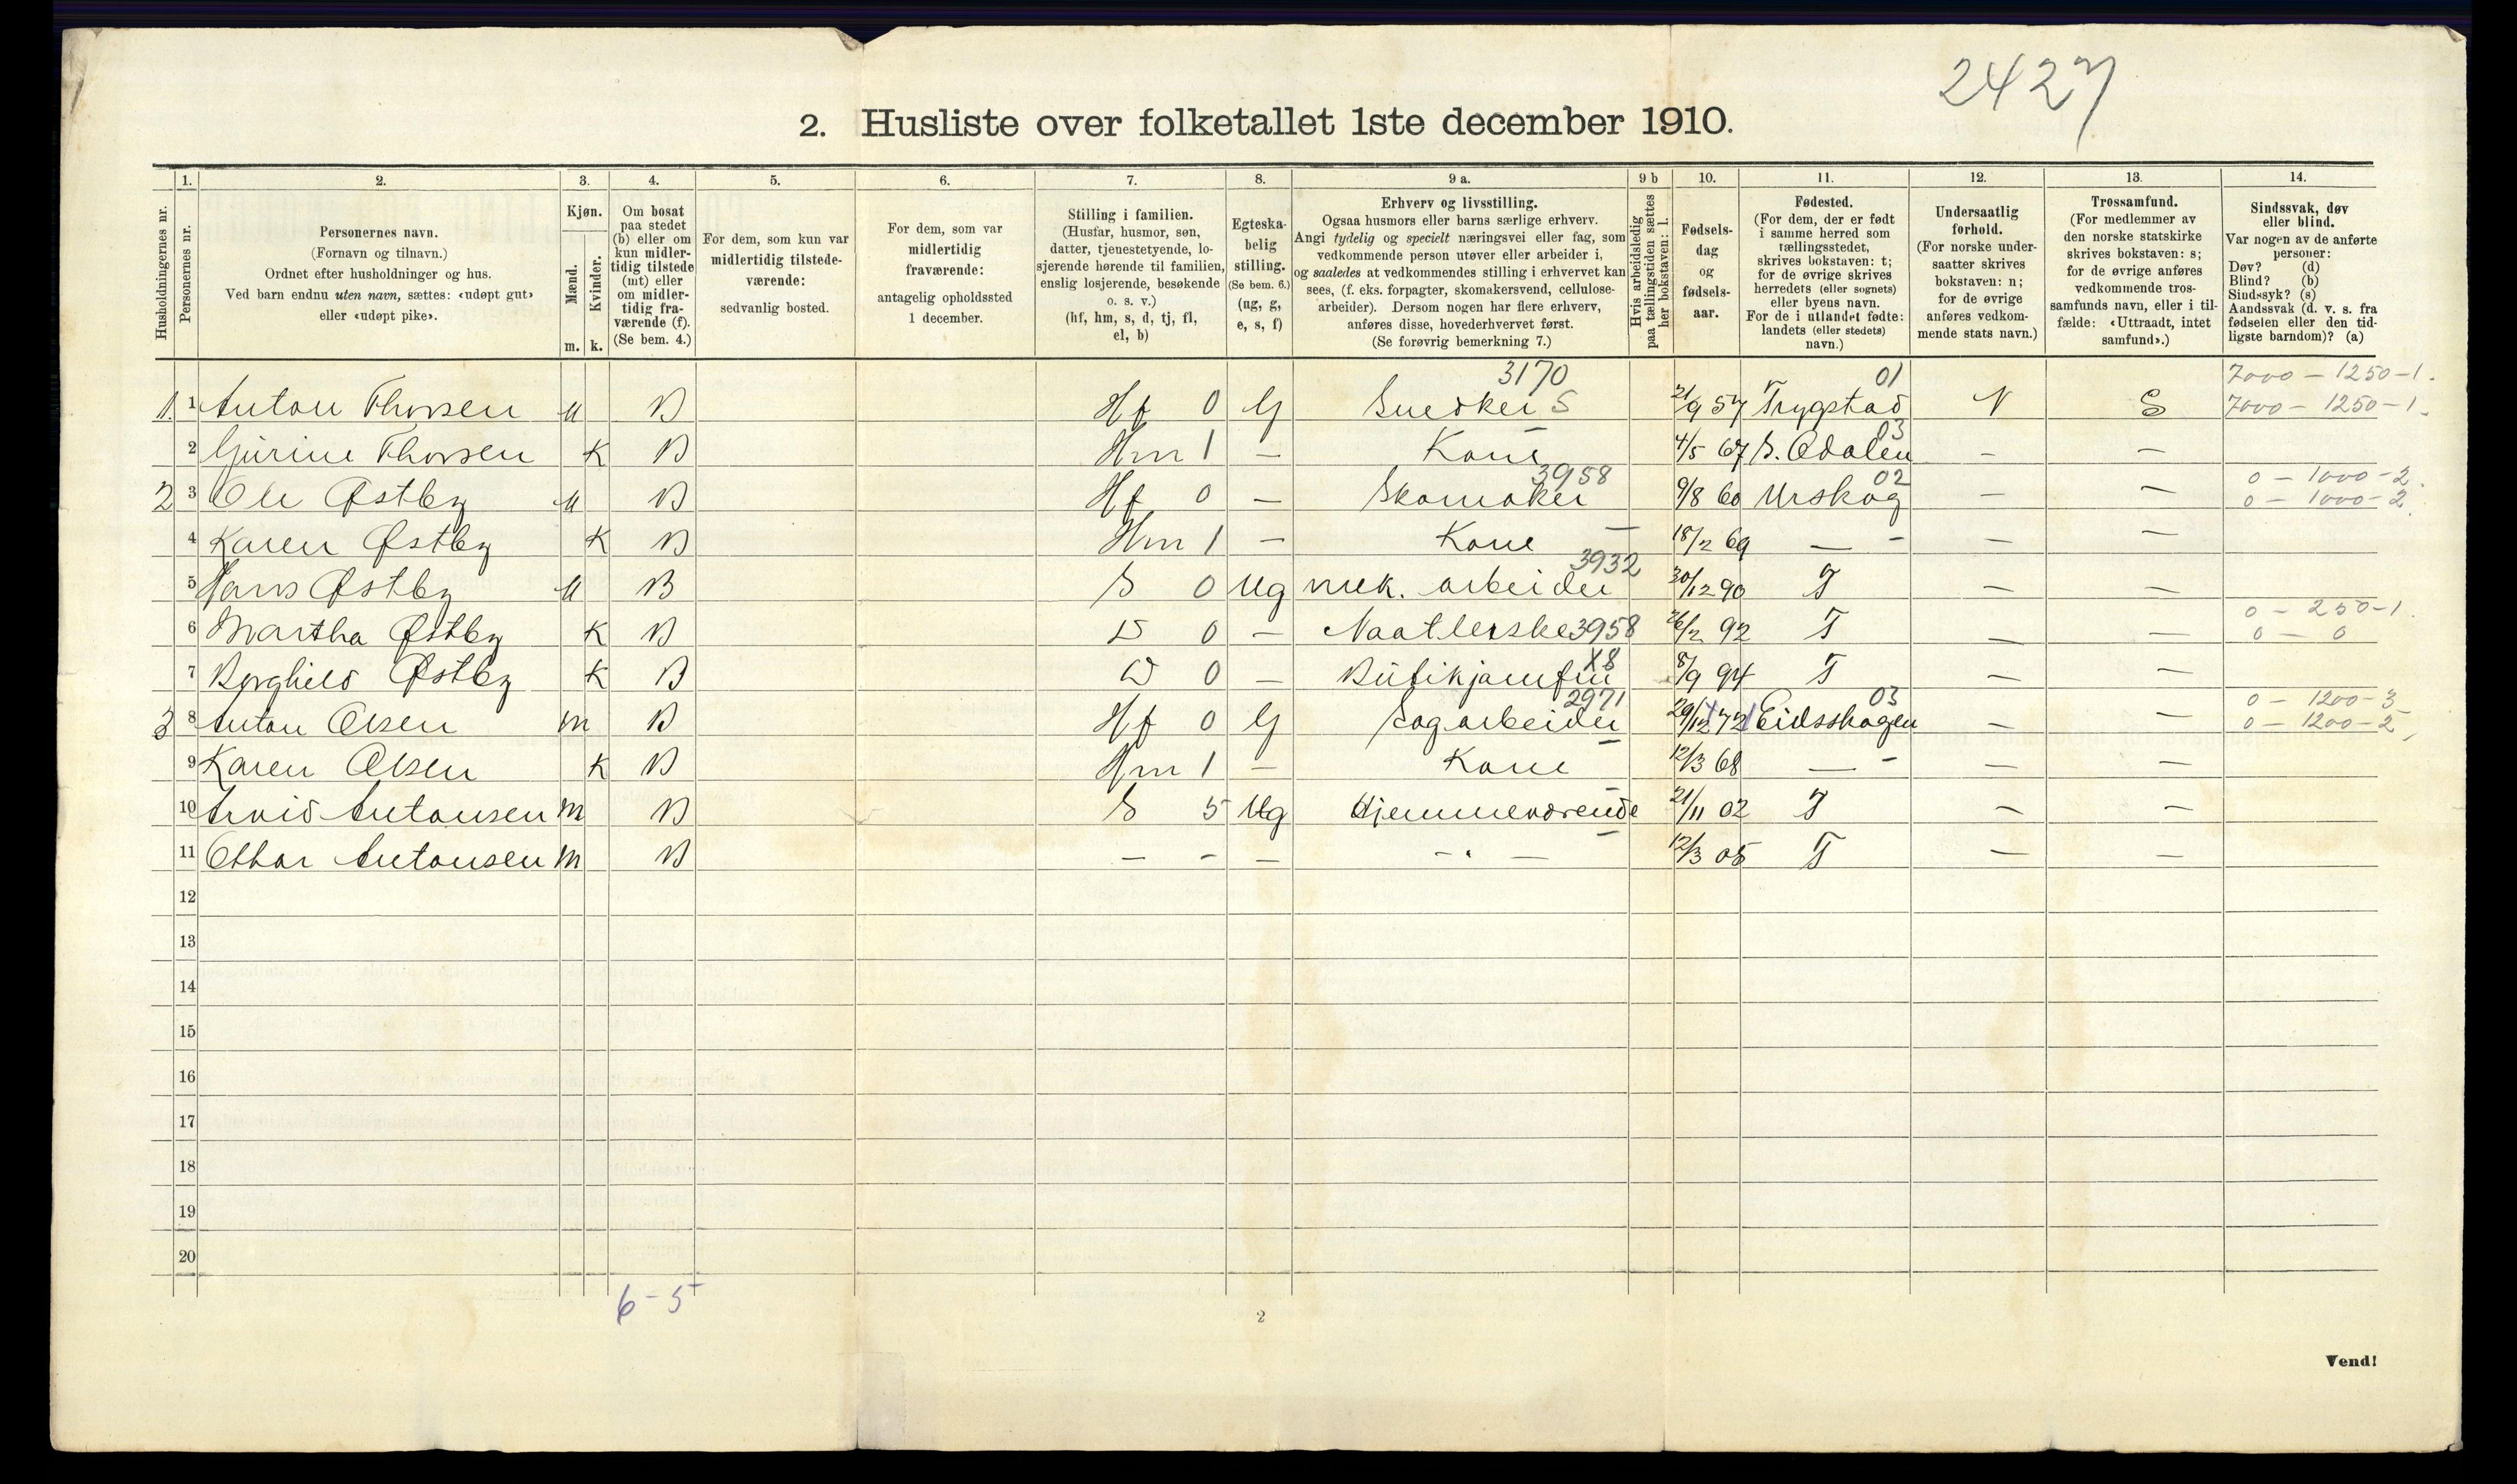 2427
2. Husliste over folketallet 1ste december 1910.
1. 2. 3. 4. 5. 6. 7. 8. 9 a. 9 b 10. 11. 12. 13. 14.
Husholdningernes nr.
Personernes nr.
Personernes navn.
(Fornavn og tilnavn.)
Ordnet efter husholdninger og hus.
Ved barn endnu uten navn, sættes: «udøpt gut»
eller «udøpt pike».
Kjøn.
Mænd.
Kvinder.
m. k.
Om bosat
paa stedet
(b) eller om
kun midler-
tidig tilstede
(mt) eller
om midler-
tidig fra-
værende (f).
(Se bem. 4.)
For dem, som kun var
midlertidig tilstede-
værende:
sedvanlig bosted.
For dem, som var
midlertidig
fraværende:
antagelig opholdssted
1 december.
Stilling i familien.
(Husfar, husmor, søn,
datter, tjenestetyende, lo-
sjerende hørende til familien,
enslig losjerende, besøkende
o. s. v.)
(hf, hm, s, d, tj, fl,
el, b)
Egteska-
belig
stilling.
(Se bem. 6.)
(ug, g,
e, s, f)
Erhverv og livsstilling.
Ogsaa husmors eller barns særlige erhverv.
Angi tydelig og specielt næringsvei eller fag, som
vedkommende person utøver eller arbeider i,
og saaledes at vedkommendes stilling i erhvervet kan
sees, (f. eks. forpagter, skomakersvend, cellulose-
arbeider). Dersom nogen har flere erhverv,
anføres disse, hovederhvervet først.
(Se forøvrig bemerkning 7.)
Hvis arbeidsledig
paa tællingstiden sættes
her bokstaven: l.
Fødsels-
dag
og
fødsels-
aar.
Fødested.
(For dem, der er født
i samme herred som
tællingsstedet,
skrives bokstaven: t;
for de øvrige skrives
herredets (eller sognets)
eller byens navn.
For de i utlandet fødte:
landets (eller stedets)
navn.)
Undersaatlig
forhold.
(For norske under-
saatter skrives
bokstaven: n;
for de øvrige
anføres vedkom-
mende stats navn.)
Trossamfund.
(For medlemmer av
den norske statskirke
skrives bokstaven: s;
for de øvrige anføres
vedkommende tros-
samfunds navn, eller i til-
fælde: «Uttraadt, intet
samfund».)
Sindssvak, døv
eller blind.
Var nogen av de anførte
personer:
Døv? (d)
Blind? (b)
Sindssyk? (s)
Aandssvak (d. v. s. fra
fødselen eller den tid-
ligste barndom)? (a)
3170 01 7000 - 1250 - 1.
1. 1 Anton Thorsen M B Hf 0 G Snedker S 21/9 57 Trygstad N S 7000 - 1250 - 1.
03
2 Gurine Thorsen K B Hm 1 — Kone — 4/5 67 S. Odalen — —
3958 02 0 - 1000 - 2.
2 3 Ole Østby M B Hf 0 — Skomaker 9/8 60 Urskog — — 0 - 1000 - 2.
4 Karen Østby K B Hm 1 — Kone — 18/2 69 — - — —
3932
5 Hans Østby M B S 0 Ug mek. arbeider 30/12 90 T — —
0 - 250 - 1.
6 Martha Østby K B D 0 — Naatlerske 3958 26/2 92 T — — 0 - 0
X8
7 Borghild Østby K B D 0 — Butikjomfru 8/9 94 T — —
2971 03 0 - 1200 - 3
3 8 Anton Olsen m B Hf 0 G Sagarbeider 29/12 72 Eidsskogen — — 0 - 1200 - 2
9 Karen Olsen K B Hm 1 — Kone — 12/3 68 — - — —
10 Arvid Antonsen m B S 5 Ug Hjemmeværende — 21/11 02 T — —
11 Othar Antonsen m B — - — — — 12/3 05 T — —
12
13
14
15
16
17
18
19
20
6 - 5
2
Vend!